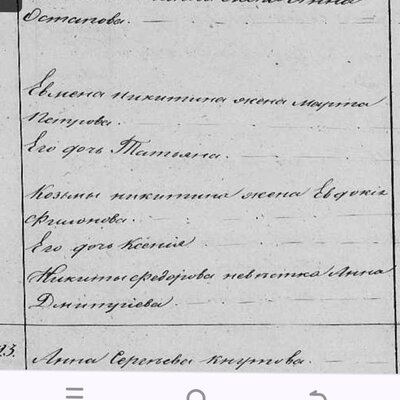 Анна
Остапова.
Евмена Никитина жена Марта
Петрова.
Его дочь Татьяна.
Козьмы Никитина жена Евдокія
Филонова.
Его дочь Ксенія
Никиты Федорова невестка Анна
Дмитріева.
23.
Анна Сергеева Кнутова.